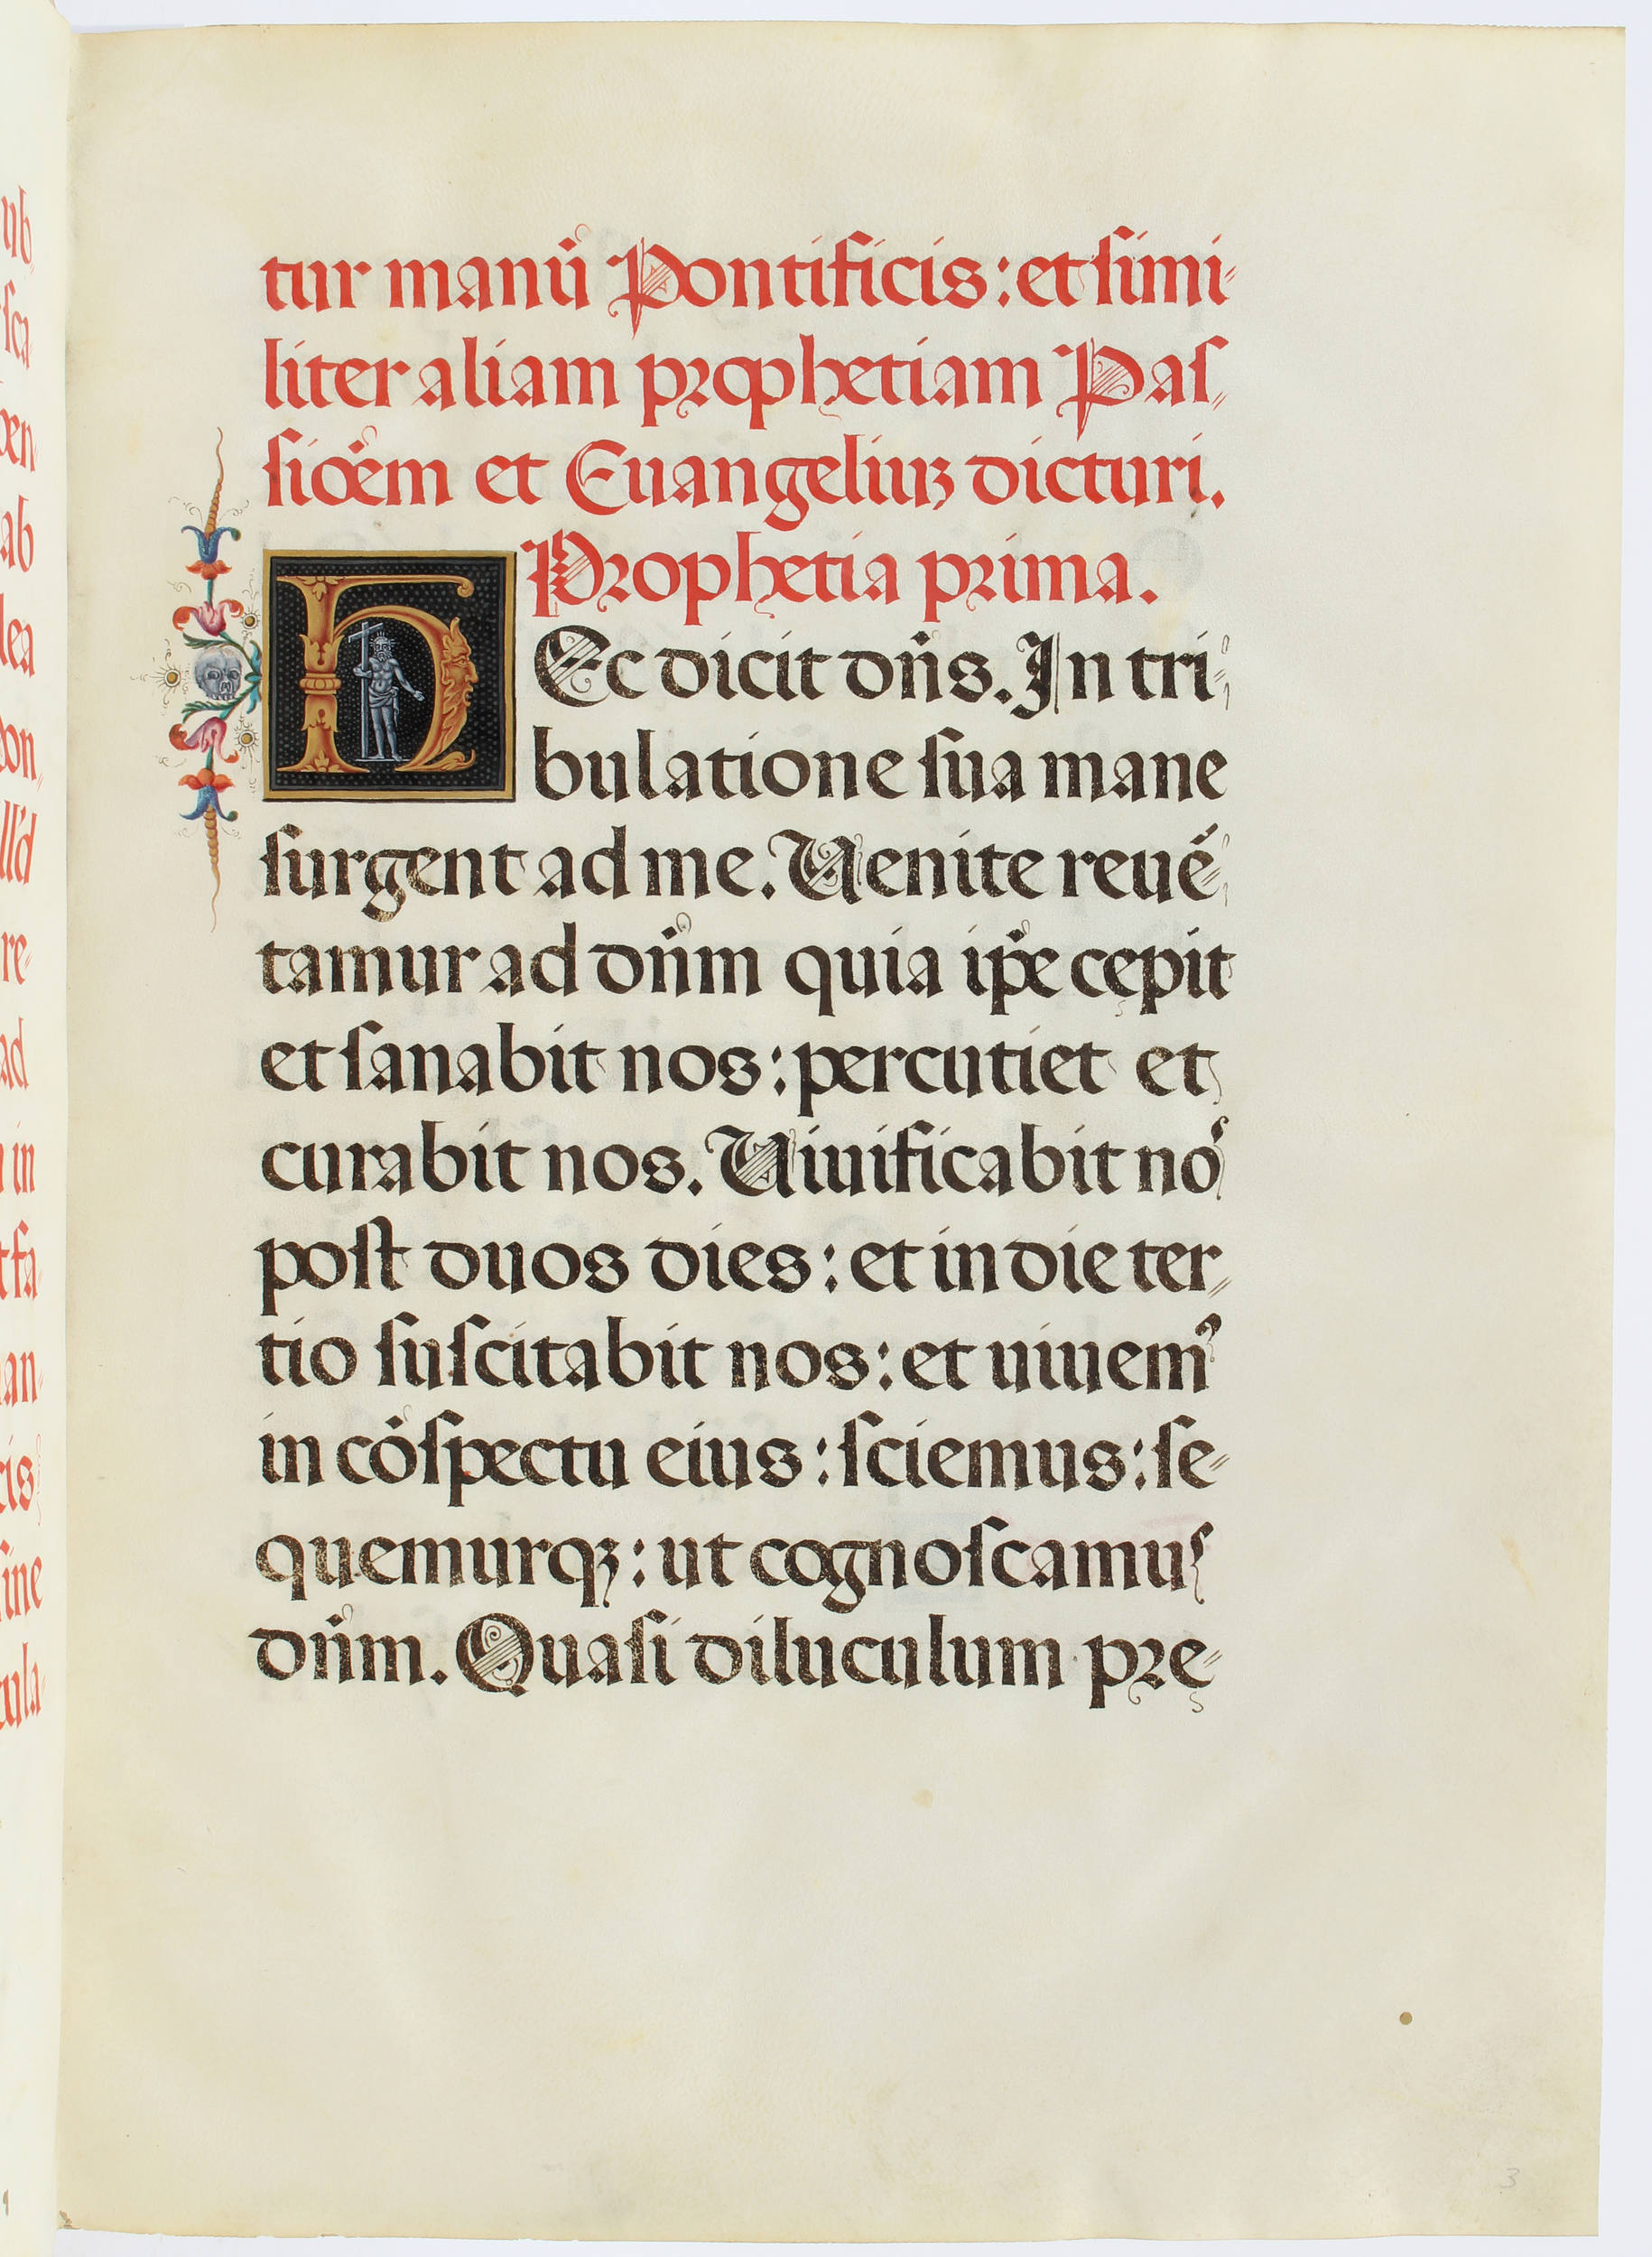 tur manū Pontificis: et simi-
liter aliam prophetiam Pas-
sioēm et Euangeliuꝫ dicturi.
Prophetia prima.
HEc dicit dn̄s. In tri-
bulatione sua mane
surgent ad me. Uenite reuē-
tamur ad dn̄m quia ip̄e cępit
et sanabit nos: percutiet et
curabit nos. Uiuificabit noˢ
post duos dies: et in die ter-
tio suscitabit nos: et uiuemꝰ
in cōspectu eius: sciemus: se-
quemurqꝫ: ut cognoscamuˢ
dn̄m. Quasi diluculum prę-
3